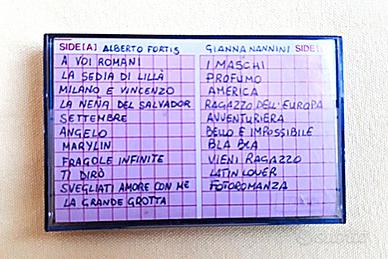 SIDE[A] ALBERTO FORTIS
A VOI ROMANI
LA SEDIA DI LILLÀ
MILANO E VINCENZO
LA NEÑA DEL SALVADOR
SETTEMBRE
ANGELO
MARYLIN
FRAGOLE INFINITE
TI DIRÒ
SVEGLIATI AMORE CON ME
LA GRANDE GROTTA
GIANNA NANNINI SIDE[
I MASCHI
PROFUMO
AMERICA
RAGAZZO DELL'EUROPA
AVVENTURIERA
BELLO E IMPOSSIBILE
BLA BLA
VIENI RAGAZZO
LATIN LOVER
FOTOROMANZA
subito